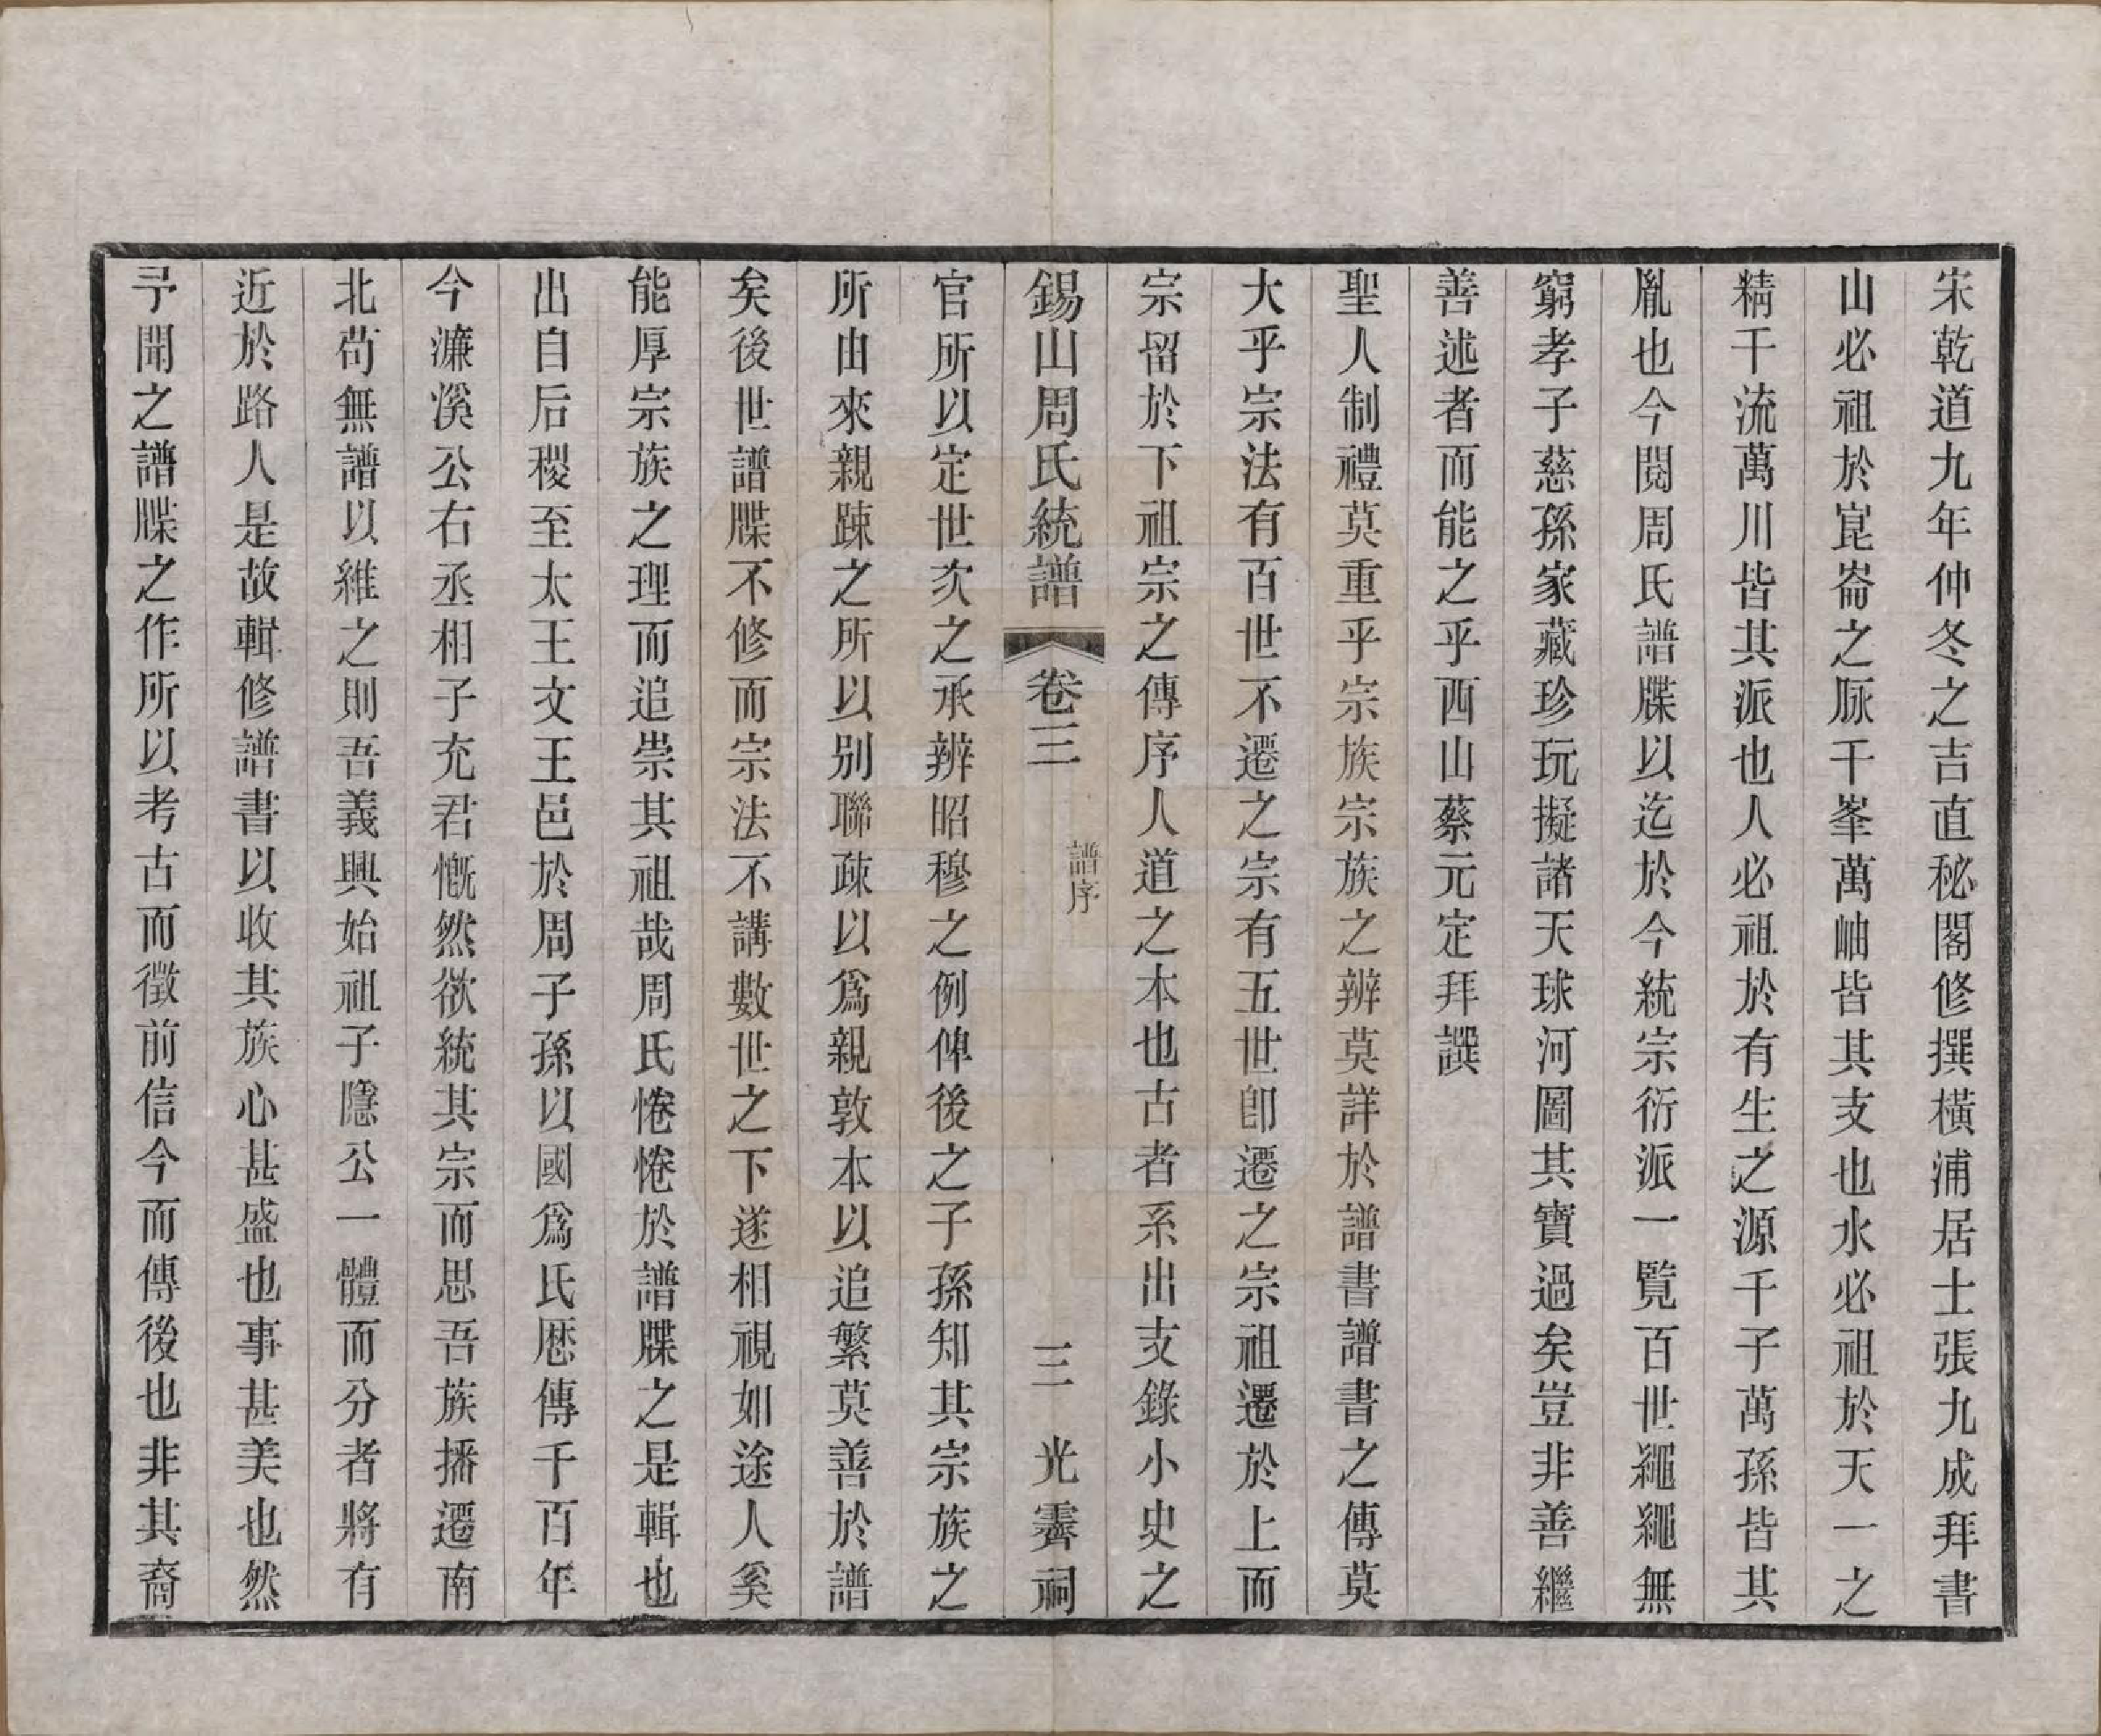 宋乾道九年仲冬之吉直秘閣修撰橫浦居士張九成拜書
山必祖於崑崙之脈千峯萬岫皆其支也水必祖於天一之
精千流萬川皆其派也人必祖於有生之源千子萬孫皆其
胤也今閱周氏譜牒以迄於今統宗衍派一覽百世繩繩無
窮孝子慈孫家藏珍玩擬諸天球河圖其寶過矣豈非善繼
善述者而能之乎西山蔡元定拜譔
聖人制禮莫重乎宗族宗族之辨莫詳於譜書譜書之傳莫
大乎宗法有百世不遷之宗有五世卽遷之宗祖遷於上而
宗留於下祖宗之傳序人道之本也古者系出支錄小史之
錫山周氏統譜 卷三 譜序 三 光霽祠
官所以定世次之承辨昭穆之例俾後之子孫知其宗族之
所由來親踈之所以別聯疎以爲親敦本以追繁莫善於譜
矣後世譜牒不修而宗法不講數世之下遂相視如途人奚
能厚宗族之理而追崇其祖哉周氏惓惓於譜牒之是輯也
出自后稷至太王文王邑於周子孫以國爲氏歷傳千百年
今濂溪公右丞相子充君慨然欲統其宗而思吾族播遷南
北苟無譜以維之則吾義興始祖子隱公一體而分者將有
近於路人是故輯修譜書以收其族心甚盛也事甚美也然
予聞之譜牒之作所以考古而徵前信今而傳後也非其裔